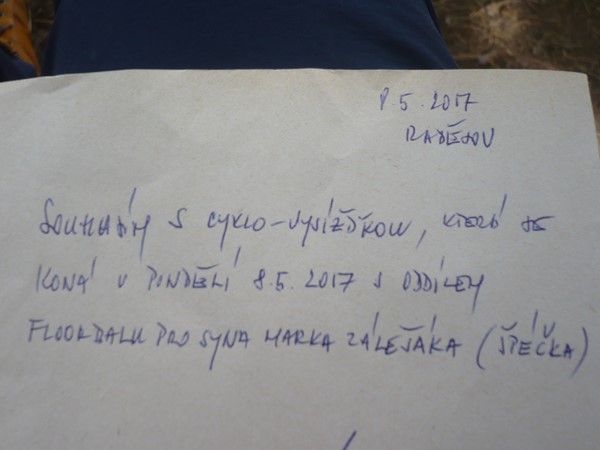 8.5.2017
RADĚJOV
SOUHLASÍM S CYKLO-VYJÍŽĎKOU, KTERÁ SE
KONÁ V PONDĚLÍ 8.5.2017 S ODDÍLEM
FLOORBALU PRO SYNA MARKA ZÁLEŠÁKA (ŠPÉČKA)